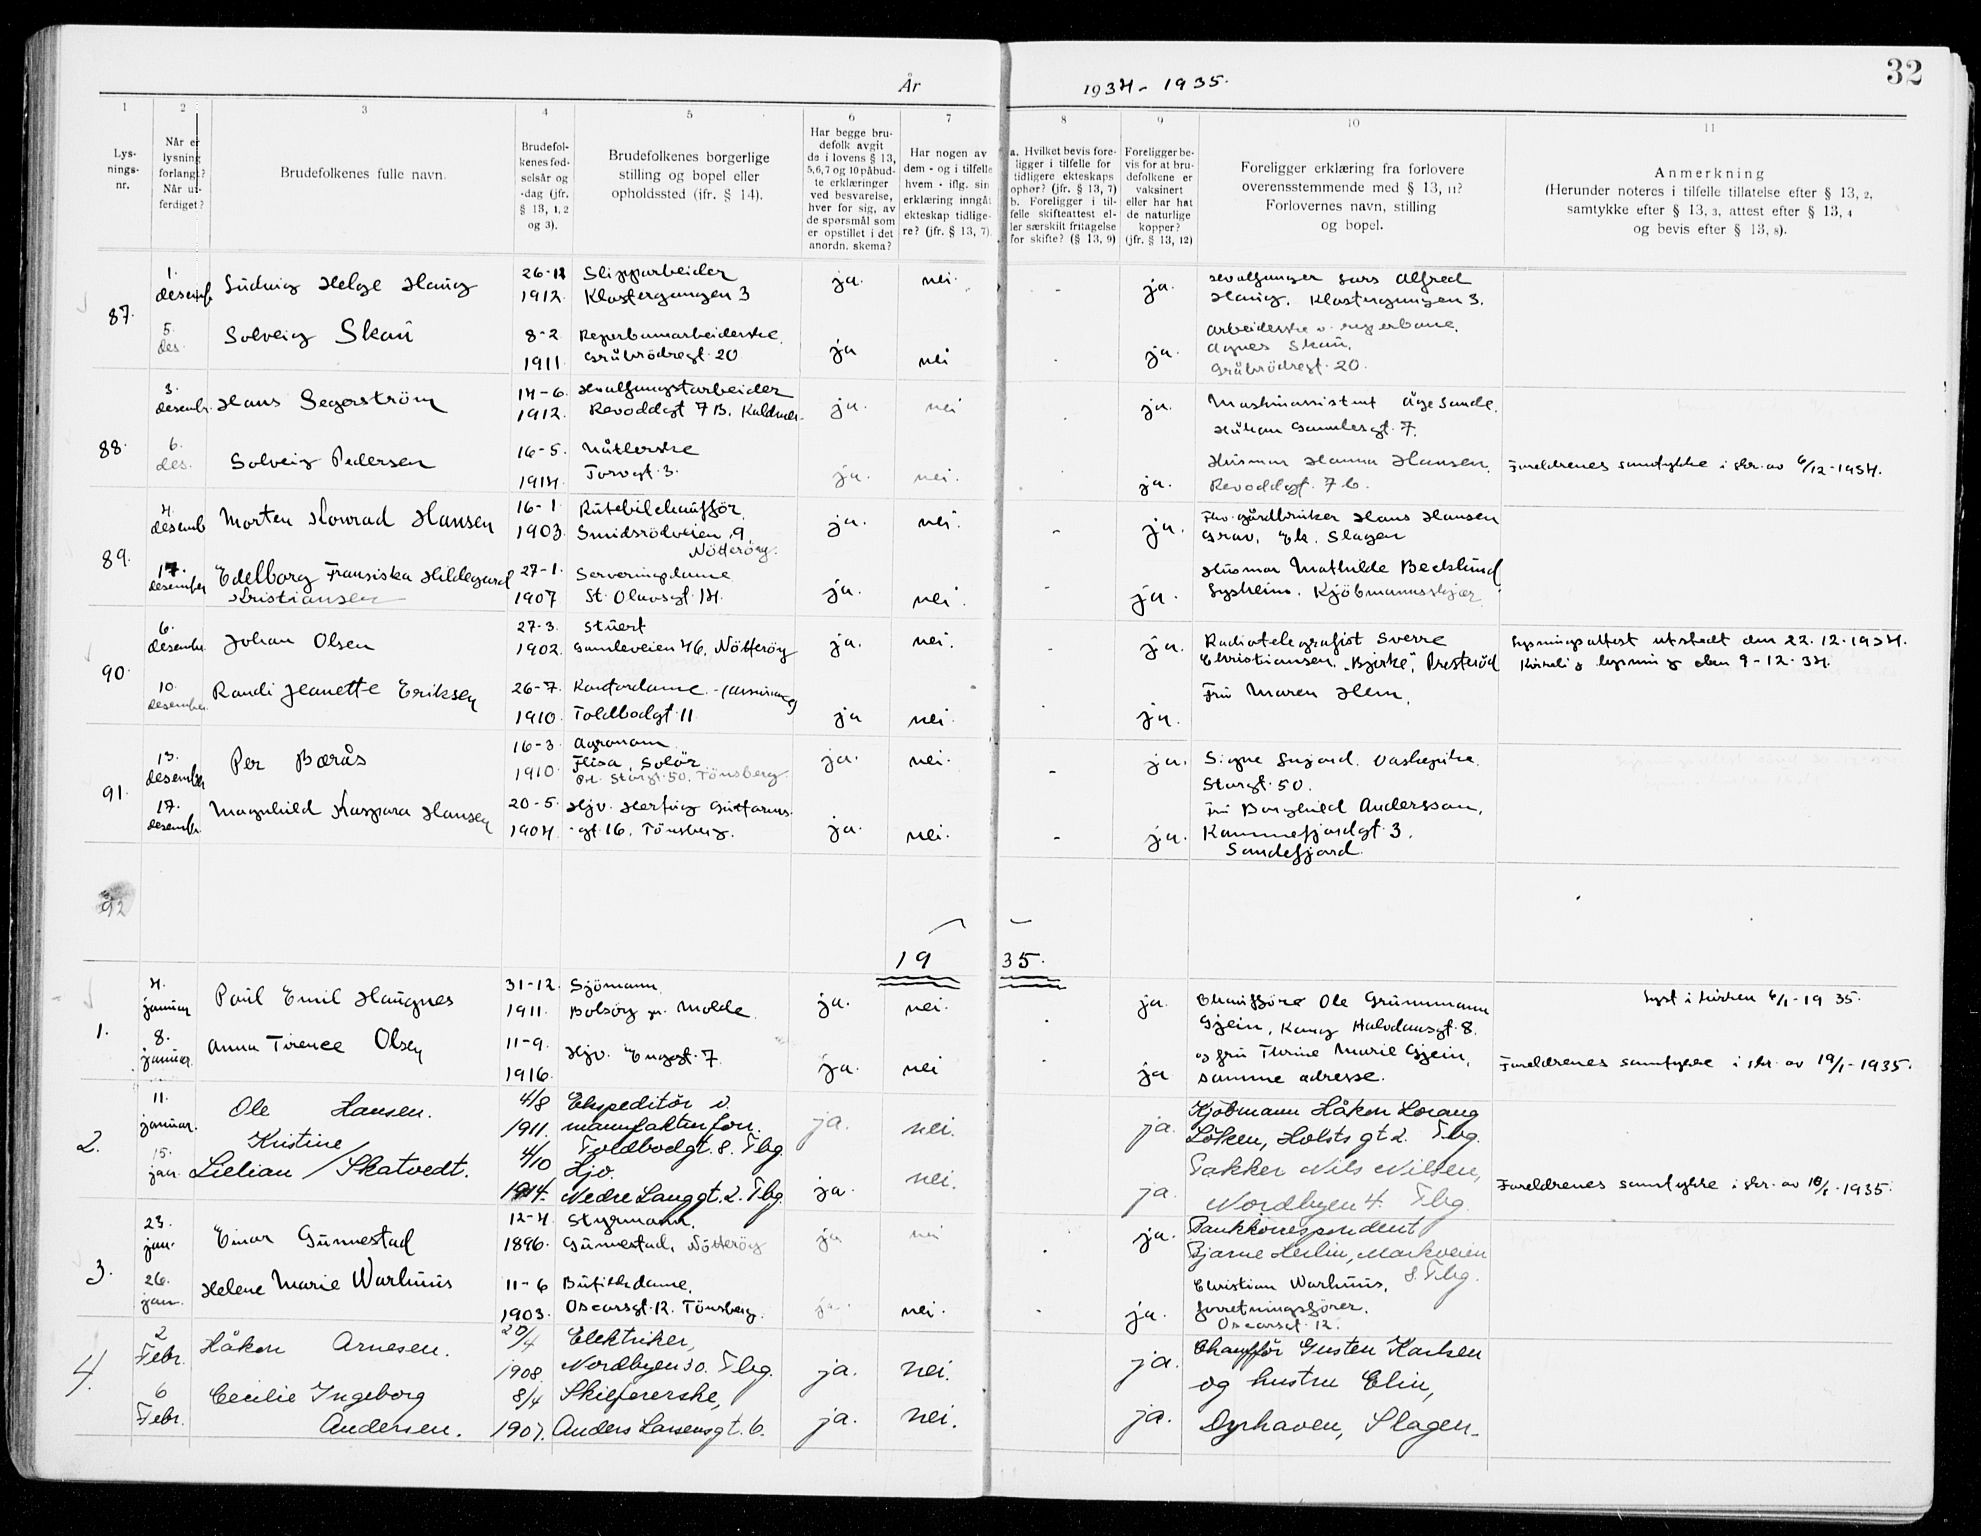 År 1934 - 1935.
32
1 2 3 4 5 6 7 8 9 10 11
Lys-
nings-
nr.
Når er
lysning
forlangt?
Når ut-
ferdiget?
Brudefolkenes fulle navn.
Brudefol-
kenes fød-
selsår og
-dag (jfr.
§ 13, 1, 2
og 3).
Brudefolkenes borgerlige
stilling og bopel eller
opholdssted (jfr. § 14).
Har begge bru-
defolk avgit
de i lovens § 13,
5,6,7 og 10 påbud-
te erklæringer
ved besvarelse,
hver for sig, av
de spørsmål som
er opstillet i det
anordn. skema?
Har nogen av
dem - og i tilfelle
hvem - iflg. sin
erklæring inngåt
ekteskap tidlige-
re? (jfr. § 13, 7).
a. Hvilket bevis fore-
ligger i tilfelle for
tidligere ekteskaps
ophør? (jfr. § 13, 7)
b. Foreligger i til-
felle skifteattest el-
ler særskilt fritagelse
for skifte? (§ 13, 9)
Foreligger be-
vis for at bru-
defolkene er
vaksinert
eller har hat
de naturlige
kopper?
(jfr. § 13, 12)
Foreligger erklæring fra forlovere
overensstemmende med § 13, 11?
Forlovernes navn, stilling
og bopel.
Anmerkning
(Herunder noteres i tilfelle tillatelse efter § 13, 2,
samtykke efter § 13, 3, attest efter § 13, 4
og bevis efter § 13, 8).
87.
1.
desemb
Ludvig Helge Haug
26-12
1912.
Slipparbeider
Klostergangen 3
ja. nei. - ja.
Hvalfanger Lars Alfred
Haug, Klostergangen 3.
5.
des.
Solveig Skau
8-2
1911
Reperbanearbeiderske.
Gråbrödregt. 20
ja nei - ja.
Arbeiderske v. reperbane.
Agnes Skau.
Gråbrödregt. 20.
88.
3.
desembr.
Hans Segerström
14-6.
1912.
Hvalfangstarbeider
Revoddgt 7B. Kaldnes.
ja. nei - ja.
Maskinassistent Åge Sande.
Håkon Gamlesgt. 7.
6.
des.
Solveig Pedersen
16-5.
1914.
Nåtlerske
Torvgt. 3.
ja. nei. ja.
Husmor Hanna Hansen.
Revoddgt. 7 b.
Foreldrenes samtykke i skr. av 6/12-1934.
89.
4.
desemb
Morten Konrad Hansen
16-1
1903.
Rutebilchauffør.
Smidsrödveien 9
Nötteröy.
ja. nei. - ja.
Fhv. gårdbruker Hans Hansen
Grav, Ek. Slagen
17.
desember
Edelborg Fransiska Hildegard
Kristiansen
27-1.
1907
Serveringsdame
St. Olavsgt. 14.
ja. nei. - ja.
Husmor Mathilde Becklund
Lysheim. Kjöbmannskjær.
90.
6.
desembr.
Johan Olsen
27-3.
1902.
Stuert
Gamleveien 46, Nötteröy
ja. nei. - ja.
Radiotelegrafist Sverre
Christiansen, "Bjerke", Presteröd
Lysningsattest utstedt den 22.12-1934.
Kirkelig lysning den 9-12-34.
10.
desember.
Randi Jeanette Eriksen
26-7.
1910.
Kontordame.
Toldbodgt. 11.
ja nei. - ja.
Fru Maren Hem.
91.
13.
desember
Per Bærås
16-3.
1910.
Agronom
Flisa, Solör
Storgt. 50. Tönsberg.
ja. nei. - ja.
Storgt. 50.
17.
desembr.
Magnhild Kaspara Hansen
20-5.
1904.
Hjv. Hertug Guttorms-
-gt. 16, Tönsberg.
ja. nei. - ja.
Fru Borghild Andersson,
Kammefjordgt. 3.
Sandefjord.
92
1935.
1.
4.
januar
Paul Emil Haugnes
31-12.
1911.
Sjömann.
Bolsöy pr. Molde.
ja. nei. ja.
Chauffør Ole Grunmann
Gjein, Kong Halvdansgt. 8.
Lyst i kirken 6/1-1935.
8.
januar.
Anna Tirence Olsen
11-9.
1916.
Hjv. Enggt. 7.
ja. nei ja
og fru Thrine Marie Gjein,
samme adresse.
Foreldrenes samtykke i skr. av 19/1-1935.
2.
11.
januar.
Ole Hansen.
4/8
1911.
Ekspeditör v.
manufakturforr.
Toldbodgt. 8. Tbg.
ja. nei. ja.
Kjøbmann Håkon Lorang
Löken, Holsts gt 2. Tbg.
15.
jan.
Kristine
Lilian / Skatvedt.
4/10
1914.
Hjv.
Nedre Langgt. 2. Tbg.
ja. nei. ja.
Pakker Nils Nilsen,
Nordbyen 4. Tbg.
Foreldrenes samtykke i skr. av 10/1-1935.
3.
23.
jan.
Einar Gunnestad
12-4
1896.
Styrmann.
Gunnestad, Nötteröy
ja nei ja.
Bankkorrespondent
Bjarne Herlin, Markveien
8. Tbg.
26.
jan.
Helene Marie Warhuus
11-6
1903.
Buffetdame.
Oscarsgt. 12. Tönsberg.
ja. nei. - ja.
Christian Warhuus,
forretningsförer.
Oscarsgt. 12.
4.
2
Febr.
Håkon Arnesen.
20/4
1908.
Elektriker,
Nordbyen 30. Tbg.
ja. nei. ja.
Chauffør Gusten Karlsen
og hustru Elin,
6
Febr.
Cecilie Ingeborg
Andersen.
8/4
1907.
Skiefererske,
Anders Larsensgt. 6.
ja. nei. ja.
Dyrhaven, Slagen.